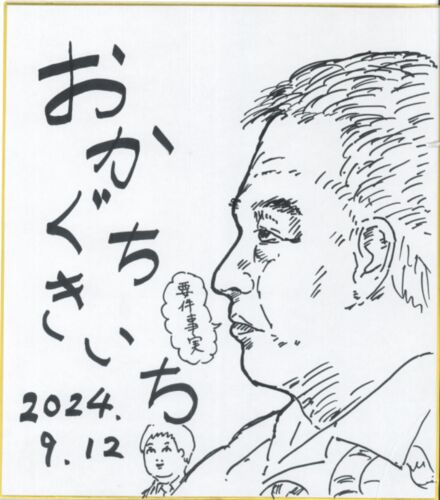 おか
ぐち
きいち
要件事実
2024.
9.12